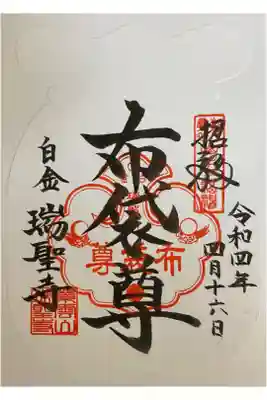 令和四年
四月十六日
布袋尊
布袋尊
白金 瑞聖寺